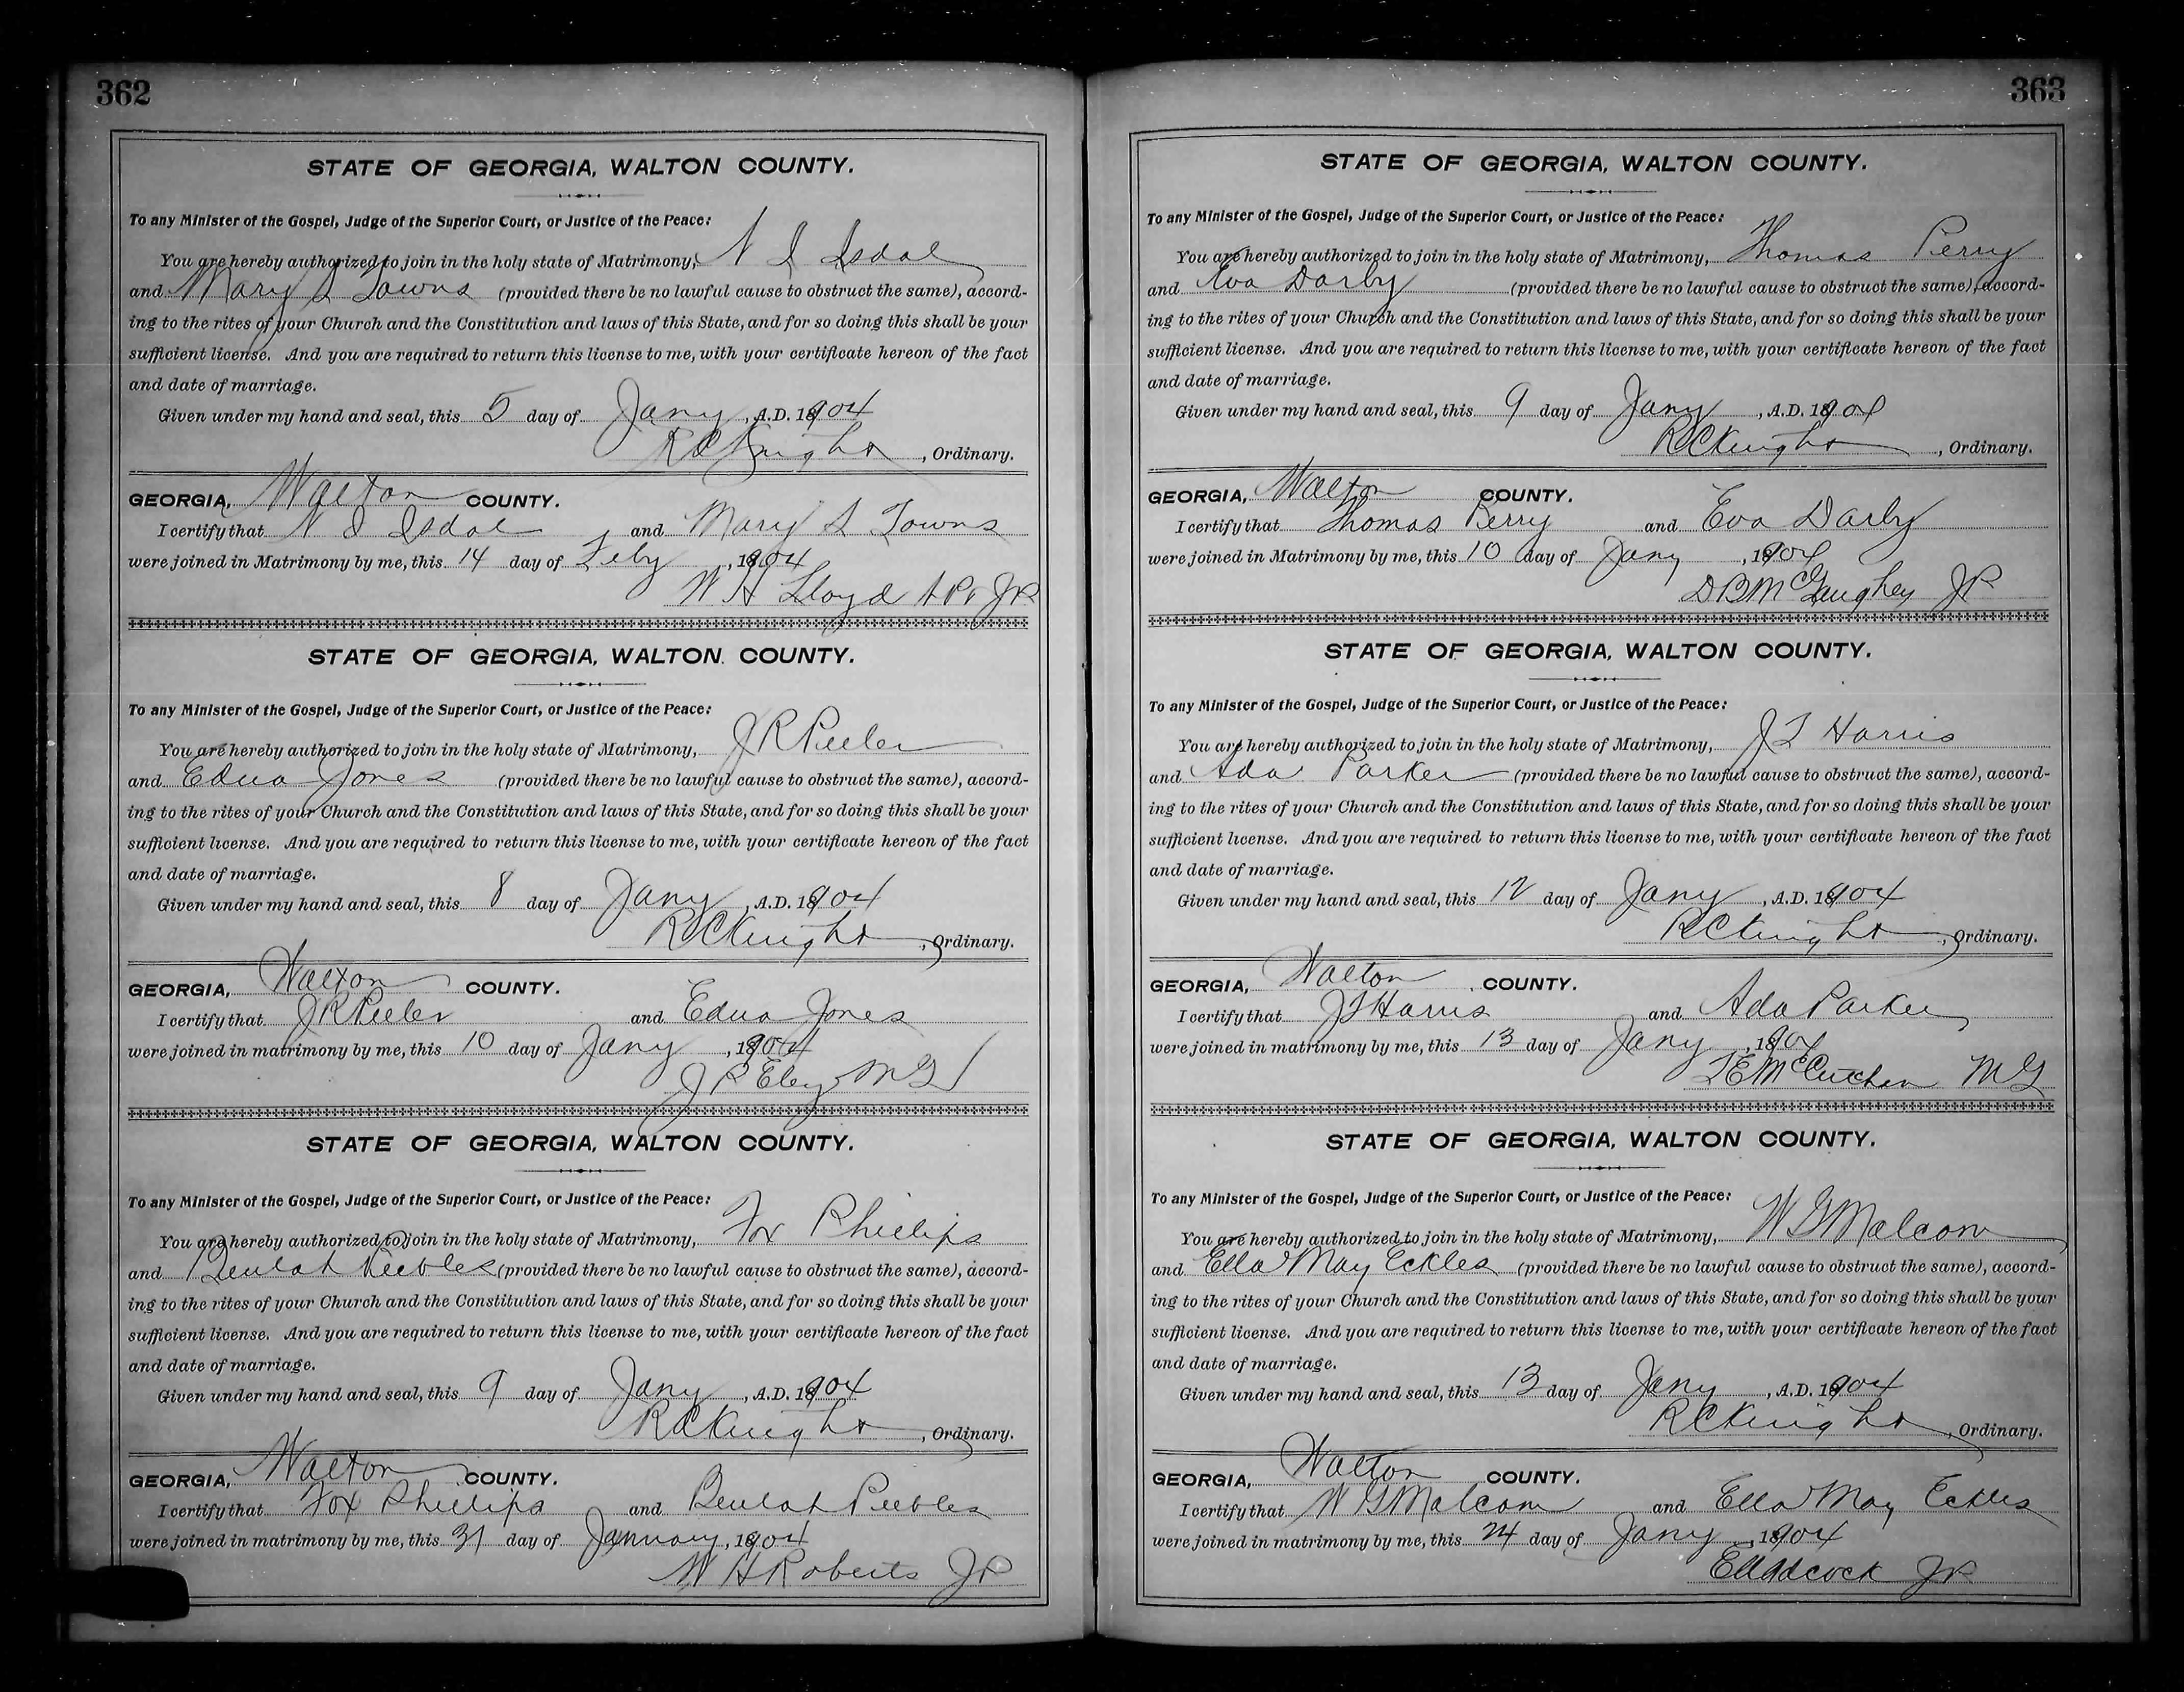 362
STATE OF GEORGIA, WALTON COUNTY.
To any Minister of the Gospel, Judge of the Superior Court, or Justice of the Peace:
You are hereby authorized to join in the holy state of Matrimony, N I Isdal
and Mary L Towns (provided there be no lawful cause to obstruct the same), accord-
ing to the rites of your Church and the Constitution and laws of this State, and for so doing this shall be your
sufficient license. And you are required to return this license to me, with your certificate hereon of the fact
and date of marriage.
Given under my hand and seal, this 5 day of Jany, A.D. 1904
R C Knight, Ordinary.
GEORGIA, Walton COUNTY.
I certify that N I Isdal and Mary L Towns
were joined in Matrimony by me, this 14 day of Feby, 1904
W H Lloyd JP
STATE OF GEORGIA, WALTON COUNTY.
To any Minister of the Gospel, Judge of the Superior Court, or Justice of the Peace:
You are hereby authorized to join in the holy state of Matrimony, J R Peeler
and Edna Jones (provided there be no lawful cause to obstruct the same), accord-
ing to the rites of your Church and the Constitution and laws of this State, and for so doing this shall be your
sufficient license. And you are required to return this license to me, with your certificate hereon of the fact
and date of marriage.
Given under my hand and seal, this 8 day of Jany, A.D. 1904
R C Knight, Ordinary.
GEORGIA, Walton COUNTY.
I certify that J R Peeler and Edna Jones
were joined in matrimony by me, this 10 day of Jany, 1904
J R Eley M G
STATE OF GEORGIA, WALTON COUNTY.
To any Minister of the Gospel, Judge of the Superior Court, or Justice of the Peace:
You are hereby authorized to join in the holy state of Matrimony, Fox Phillips
and Beulah Peebles (provided there be no lawful cause to obstruct the same), accord-
ing to the rites of your Church and the Constitution and laws of this State, and for so doing this shall be your
sufficient license. And you are required to return this license to me, with your certificate hereon of the fact
and date of marriage.
Given under my hand and seal, this 9 day of Jany, A.D. 1904
R C Knight, Ordinary.
GEORGIA, Walton COUNTY.
I certify that Fox Phillips and Beulah Peebles
were joined in matrimony by me, this 31 day of January, 1904
W H Roberts JP
363
STATE OF GEORGIA, WALTON COUNTY.
To any Minister of the Gospel, Judge of the Superior Court, or Justice of the Peace:
You are hereby authorized to join in the holy state of Matrimony, Thomas Perry
and Eva Darby (provided there be no lawful cause to obstruct the same), accord-
ing to the rites of your Church and the Constitution and laws of this State, and for so doing this shall be your
sufficient license. And you are required to return this license to me, with your certificate hereon of the fact
and date of marriage.
Given under my hand and seal, this 9 day of Jany, A.D. 1904
R C Knight, Ordinary.
GEORGIA, Walton COUNTY.
I certify that Thomas Perry and Eva Darby
were joined in Matrimony by me, this 10 day of Jany, 1904
D B McGaughey JP
STATE OF GEORGIA, WALTON COUNTY.
To any Minister of the Gospel, Judge of the Superior Court, or Justice of the Peace:
You are hereby authorized to join in the holy state of Matrimony, J T Harris
and Ada Parker (provided there be no lawful cause to obstruct the same), accord-
ing to the rites of your Church and the Constitution and laws of this State, and for so doing this shall be your
sufficient license. And you are required to return this license to me, with your certificate hereon of the fact
and date of marriage.
Given under my hand and seal, this 12 day of Jany, A.D. 1904
R C Knight, Ordinary.
GEORGIA, Walton COUNTY.
I certify that J T Harris and Ada Parker
were joined in matrimony by me, this 13 day of Jany, 1904
T E McCutchen M G
STATE OF GEORGIA, WALTON COUNTY.
To any Minister of the Gospel, Judge of the Superior Court, or Justice of the Peace:
You are hereby authorized to join in the holy state of Matrimony, W G Malcom
and Ella May Eckles (provided there be no lawful cause to obstruct the same), accord-
ing to the rites of your Church and the Constitution and laws of this State, and for so doing this shall be your
sufficient license. And you are required to return this license to me, with your certificate hereon of the fact
and date of marriage.
Given under my hand and seal, this 13 day of Jany, A.D. 1904
R C Knight, Ordinary.
GEORGIA, Walton COUNTY.
I certify that W G Malcom and Ella May Eckles
were joined in matrimony by me, this 24 day of Jany, 1904
Adcock JP